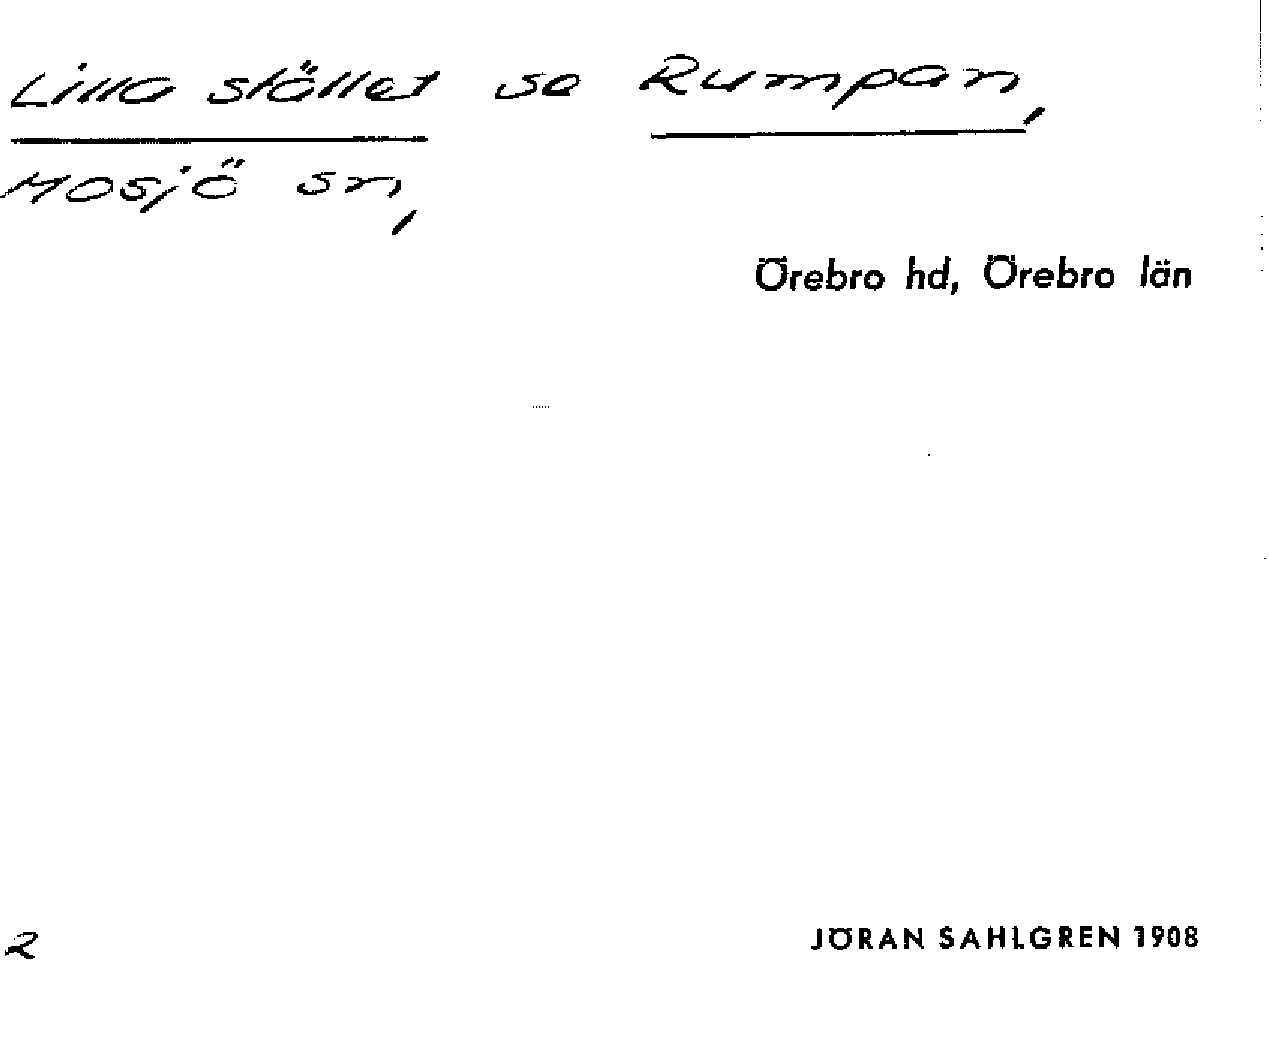 Lilla stället se Rumpan,
Mosjö sn,
Örebro hd, Örebro län
2
JÖRAN SAHLGREN 1908